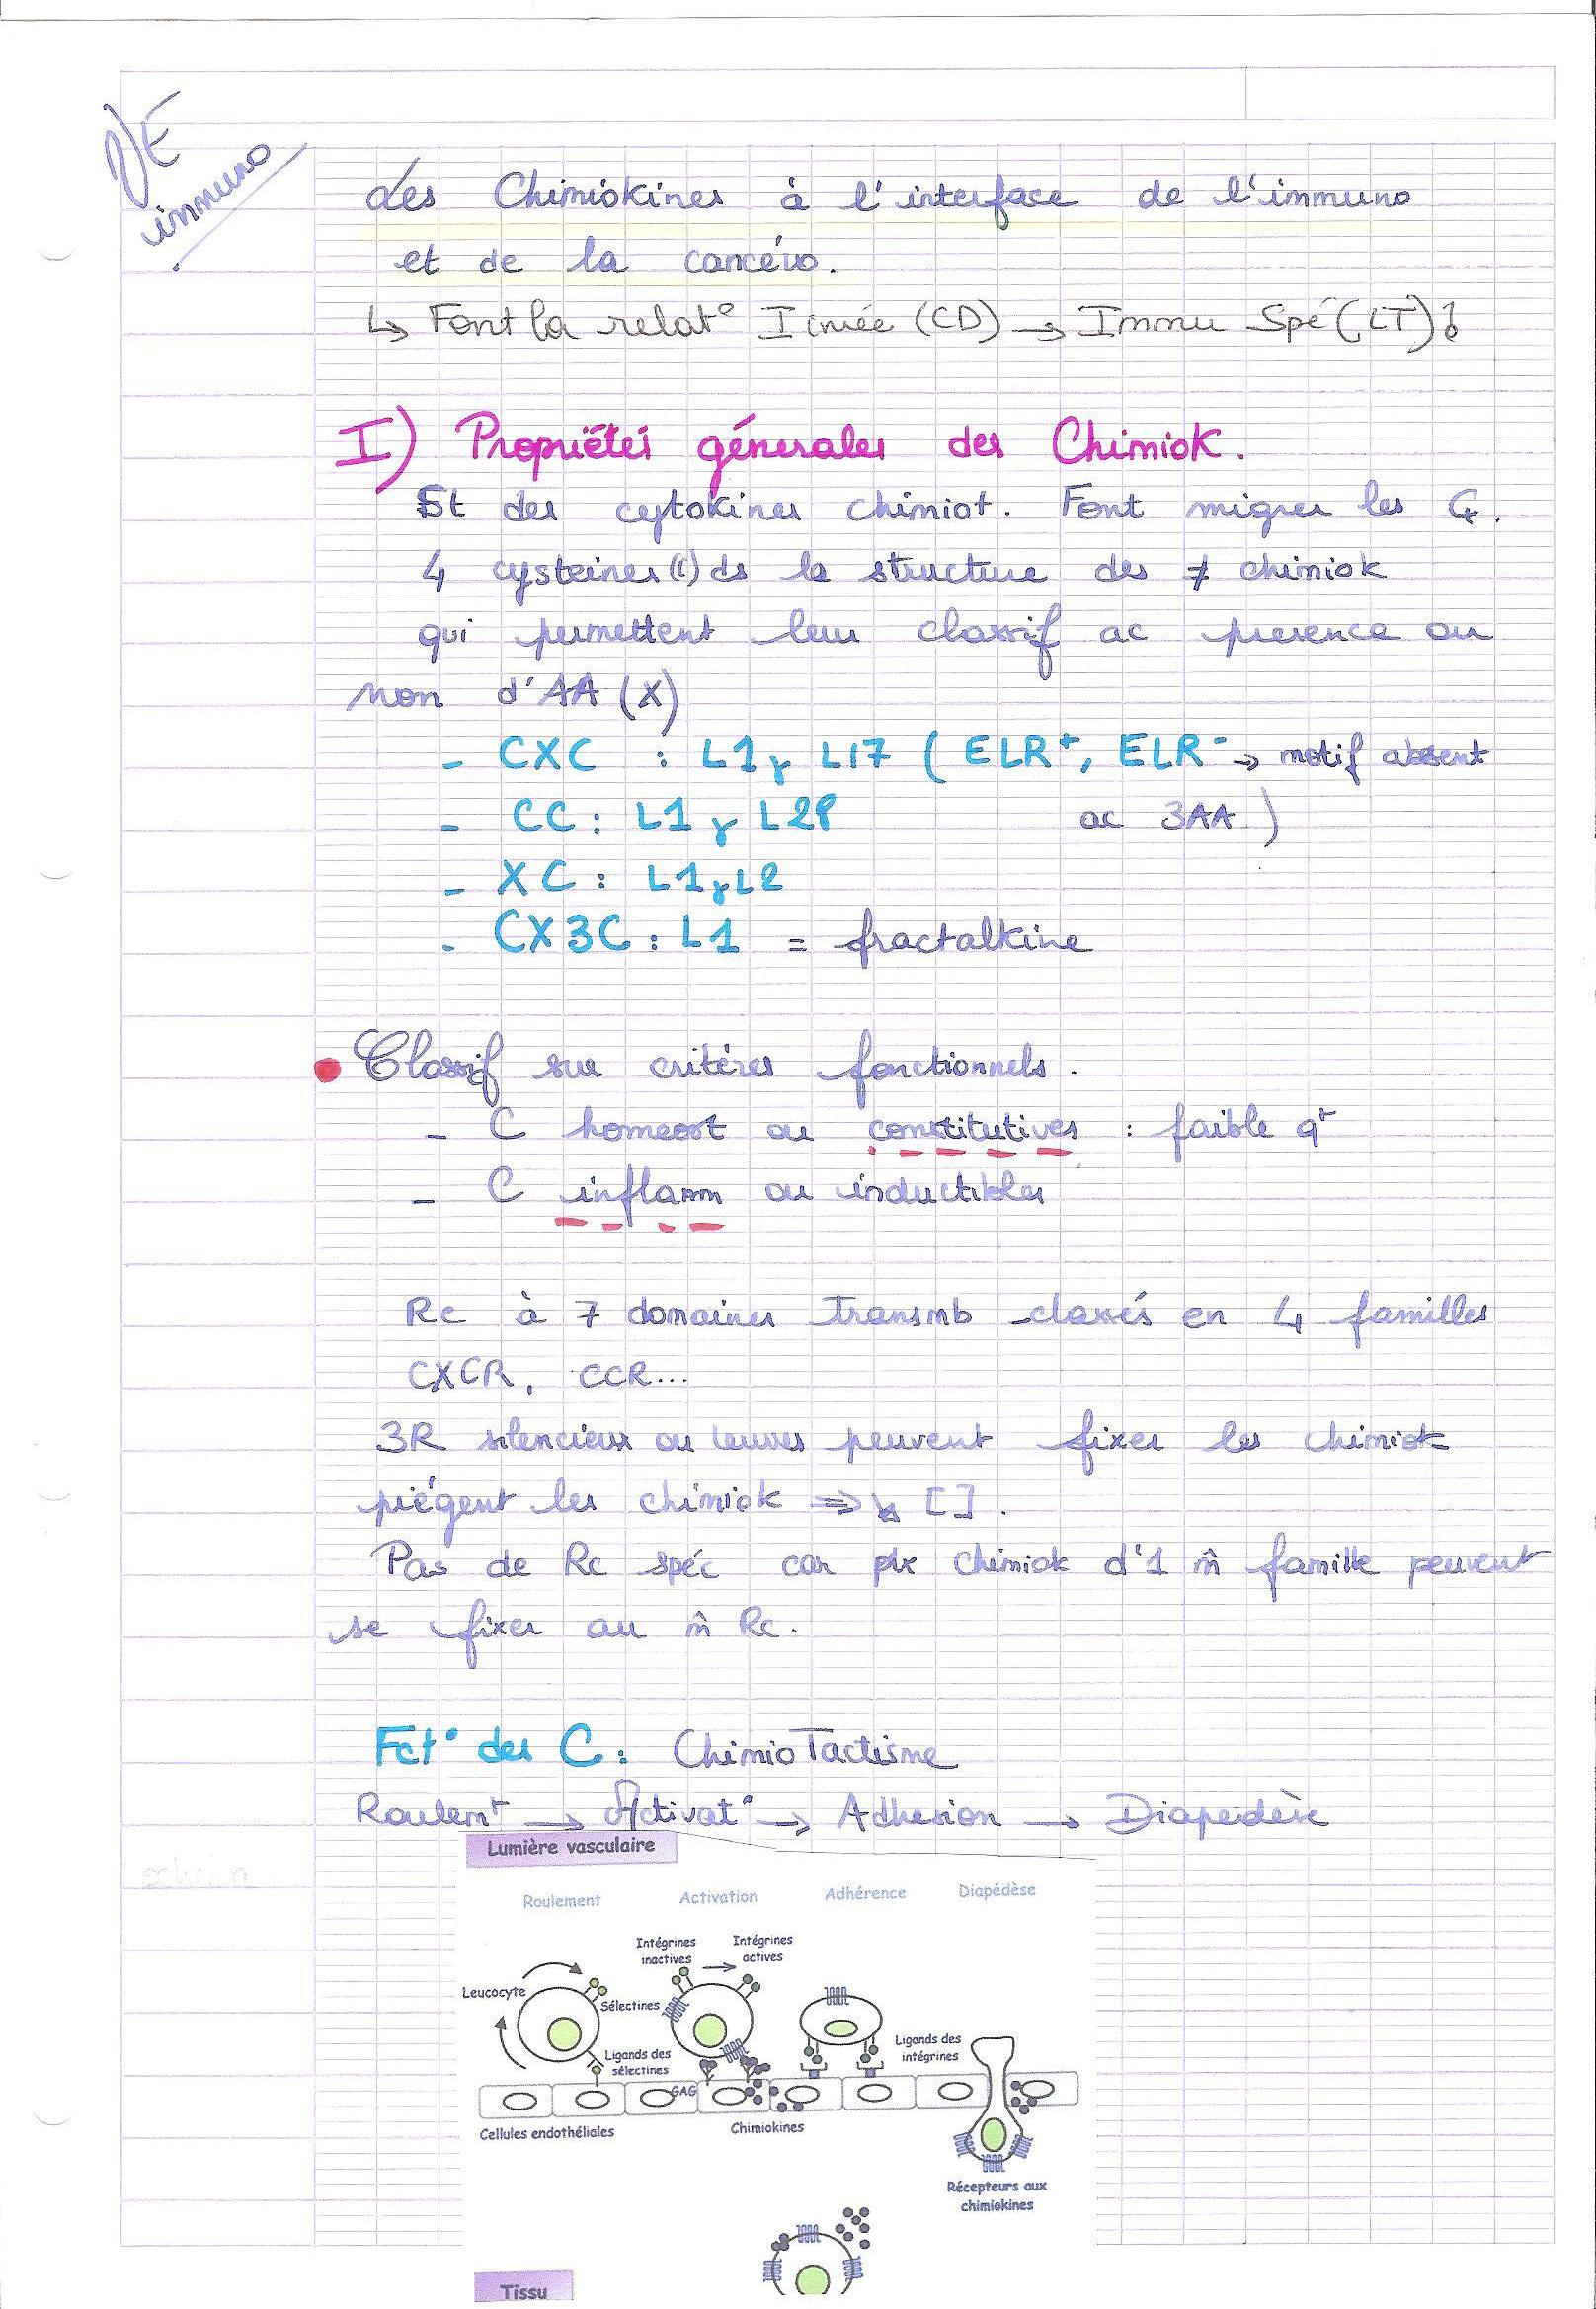 UE
immuno
Les Chimiokines à l'interface de l'immuno
et de la cancéro.
↳ Font la relat° I innée (CD) → Immu Spé (LT)
I) Propriétés génerales des Chimiok.
St des cytokines chimiot. Font migrer les
4 cysteines (C) ds la structure des ≠ chimiok
qui permettent leur classif ac presence ou
non d'AA (X)
- CXC : L1 L17 ( ELR+, ELR- → motif absent
- CC : L1 L28 ac 3AA )
- XC : L1 L2
- CX3C : L1 = fractalkine
Classif sur critères fonctionnels.
- C homeost ou constitutives : faible qt
- C inflamm ou inductibles
Rc à 7 domaines transmb classés en 4 familles
CXCR, CCR...
3R silencieux ou leurres peuvent fixer les chimiok
piégent les chimiok ⇒ ↘ [ ].
Pas de Rc spéc car plx chimiok d'1 m̂ famille peuvent
se fixer au m̂ Rc.
Fct° des C : ChimioTactisme
Roulemt → Activat° → Adhesion → Diapedèse
Lumière vasculaire
Roulement Activation Adhérence Diapédèse
Intégrines inactives → Intégrines actives
Leucocyte
Sélectines
Ligands des sélectines
Ligands des intégrines
GAG
Cellules endothéliales
Chimiokines
Récepteurs aux chimiokines
Tissu